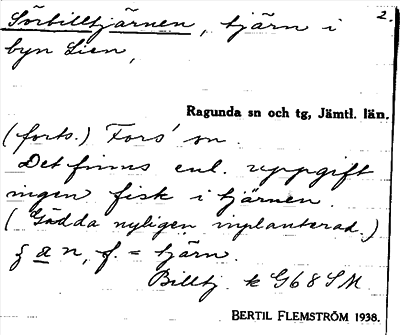 Sörbilltjärnen, tjärn i 2.
byn Lien,
Ragunda sn och tg, Jämtl. län.
(forts.) Fors' sn.
Det finns enl. uppgift
ingen fisk i tjärnen.
(Gädda nyligen inplanterad.)
a n, f. = tjärn.
Billtj. k G68 SM
BERTIL FLEMSTRÖM 1938.